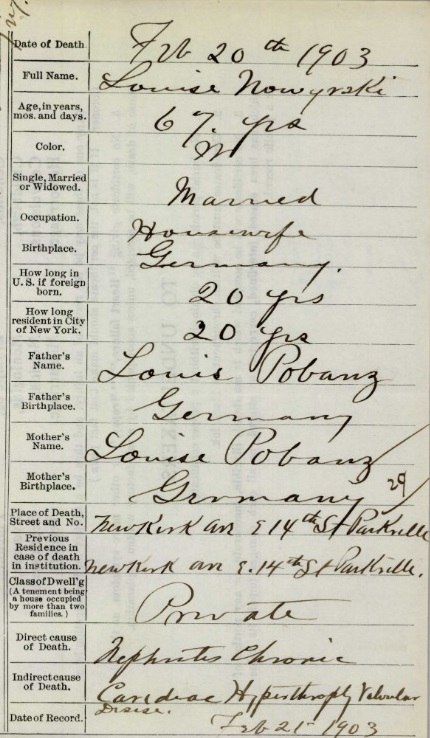 Date of Death. Feb 20th 1903
Full Name. Louise Nowyrski
Age, in years, mos. and days. 67. yrs
Color. W
Single, Married or Widowed. Married
Occupation. Housewife
Birthplace. Germany.
How long in U. S. if foreign born. 20 yrs
How long resident in City of New York. 20 yrs
Father's Name. Louis Pobanz
Father's Birthplace. Germany
Mother's Name. Louise Pobanz
Mother's Birthplace. Germany 29
Place of Death, Street and No. Newkirk av E 14th St Parkville
Previous Residence in case of death in institution. Newkirk av E. 14th St Parkville.
Class of Dwell'g (A tenement being a house occupied by more than two families.) Private
Direct cause of Death. Nephritis Chronic
Indirect cause of Death. Cardiac Hyperthrophy Valvular
Disease.
Date of Record. Feb 21st 1903